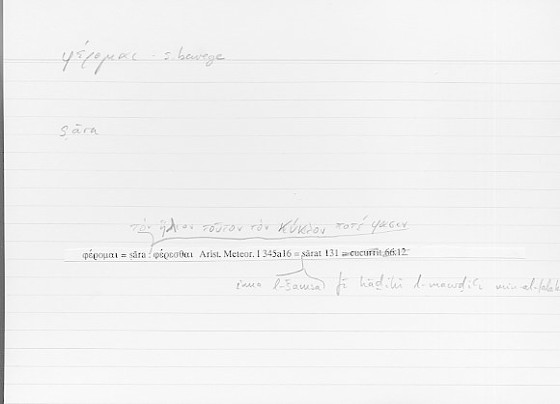 φέρομαι - s. bewege
ṣāra
τὸν ἥλιον τοῦτον τὸν κύκλον ποτέ φασιν
φέρομαι = ṣāra : φέρεσθαι Arist. Meteor. I 345a16 = ṣārat 131 = cucurrit 66.12
inna l-šamsa fī hāḏihi l-mawḍiʿi min al-falak